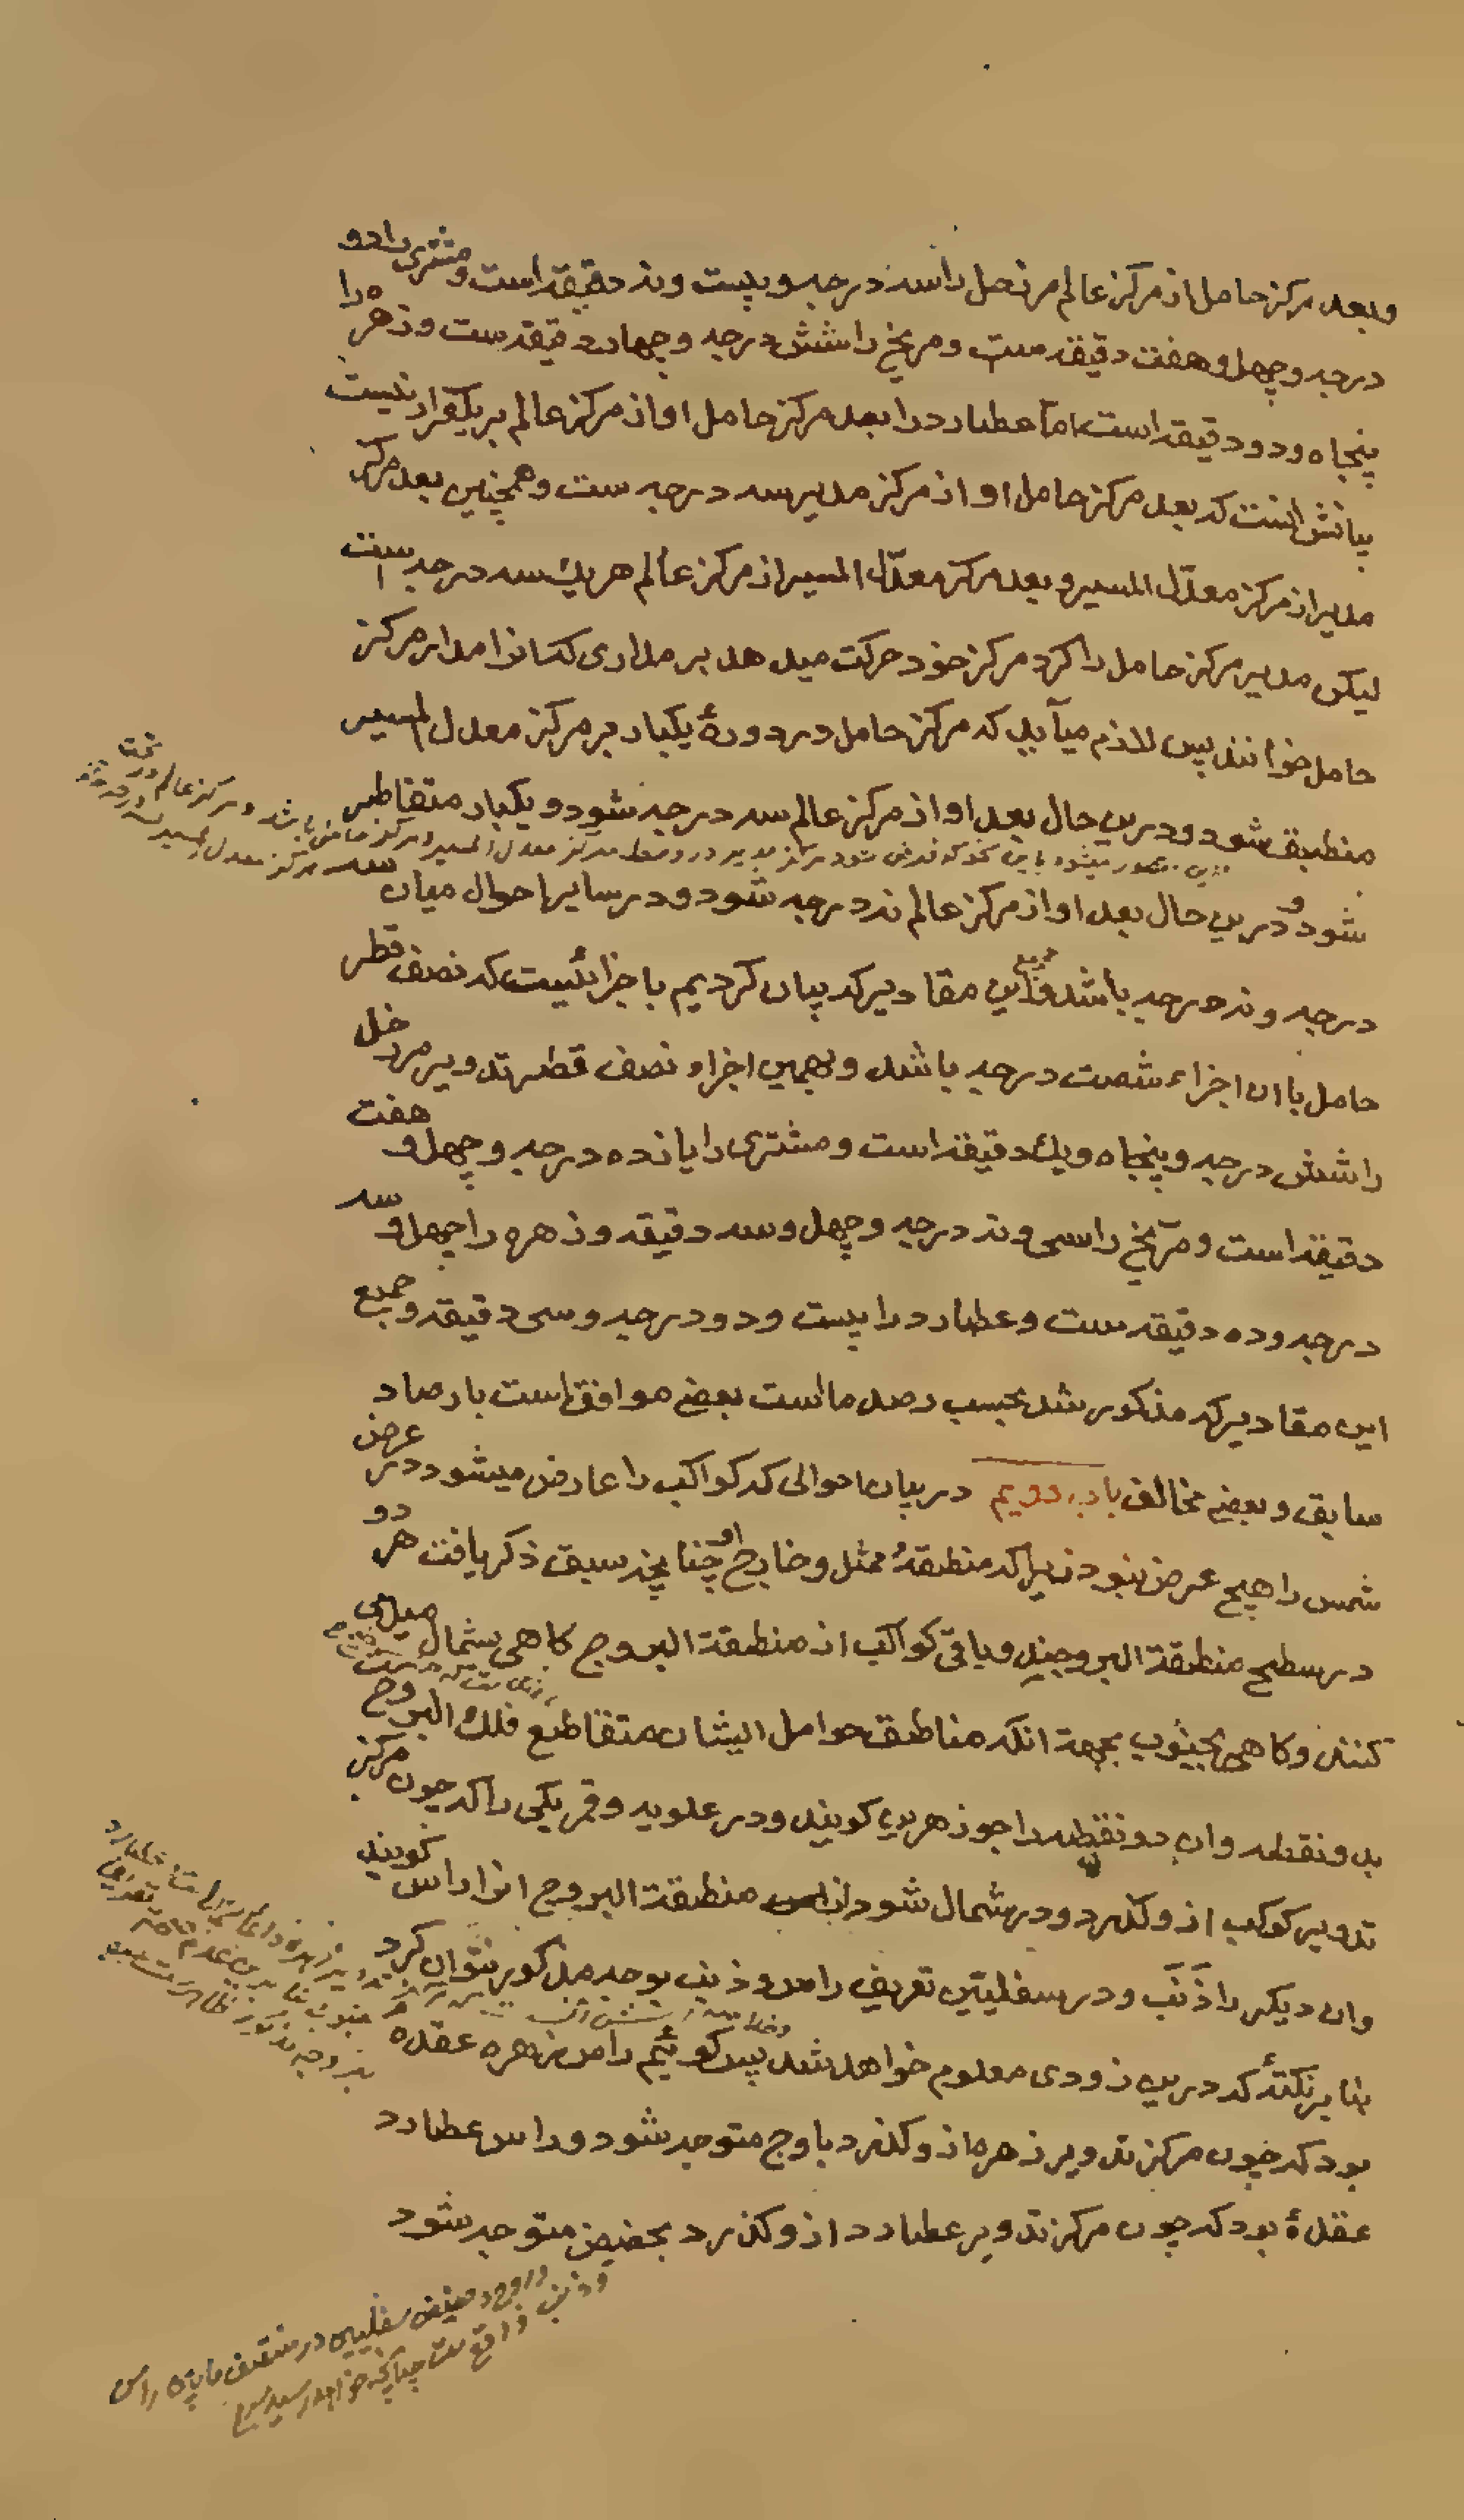 وبعد مرکز حامل از مرکز عالم مر زحل را سه درجه و بیست و نه دقیقه است و مشتری را دو
درجه و چهل و هفت دقیقه ست و مریخ را شش درجه و چهار دقیقه ست و زهره را
پنجاه و دو دقیقه است اما عطارد را بعد مرکز حامل او از مرکز عالم بر یکقرار نیست
بیانش انست که بعد مرکز حامل او از مرکز مدیر سه درجه ست و همچنین بعد مرکز
مدیر از مرکز معدّل المسیر و بعد مرکز معدّل المسیر از مرکز عالم هر یك سه درجه است
لیکن مدیر مرکز حامل را کرد مرکز خود حرکت میدهد بر مداری که انرا مدار مرکز
حامل خوانند پس لازم میآید که مرکز حامل در دورۀ یکبار بر مرکز معدل المسیر
منطبق شود و درین حال بعد او از مرکز عالم سه درجه شود و یکبار متقاطر
شود و درین حال بعد او از مرکز عالم نه درجه شود و در سایر احوال میان سه
درجه و نه درجه باشد و جمیع این مقادیر که بیان کردیم باجزائیست که نصف قطر
حامل بان اجزاء شصت درجه باشد و بهمین اجزاء نصف قطر تدویر مر زحل
را شش درجه و پنجاه و یك دقیقه است و مشتری را یازده درجه و چهل و هفت
دقیقه است و مرّیخ را سی و نه درجه و چهل و سه دقیقه و زهره را چهل و سه
درجه و ده دقیقه ست و عطارد را بیست و دو درجه و سی دقیقه و جمیع
این مقادیر که مذکور شد بحسب رصد ماست بعضی موافق است بارصاد
سابق و بعضی مخالف باب دویم در بیان احوالی که کواکب را عارض میشود در عرض
شمس را هیچ عرض نبود زیرا که منطقۀ ممثل و خارج او چنانچه سبق ذکر یافت هر دو
در سطح منطقة البروجند و باقی کواکب از منطقة البروج کاهی بشمال میل می
کنند و کاهی بجنوب بجهة انکه مناطق حوامل ایشان متقاطع فلك البروج ست
بدو نقطه و ان دو نقطه را جوزهرین کویند و در علویه و قمر یکی را که چون مرکز
تدویر کوکب ازو کذرد و در شمال شود از منطقة البروج انرا راس کویند
وان دیکر را ذَنَب و در سفلیین تعریف راس و ذنب بوجه مذکور نتوان کرد
بنا بر نکتۀ که درین زودی معلوم خواهد شد پس کوئیم راس زهره عقده
بود که چون مرکز تدویر زهره ازو کذرد باوج متوجه شود و راس عطارد
عقدۀ بود که چون مرکز تدویر عطارد ازو کذرد بحضیض متوجه شود
واوج و حضیض سفلیین در منتصف مابین راس
و ذنب واقع ست چنانچه خواهد رسید